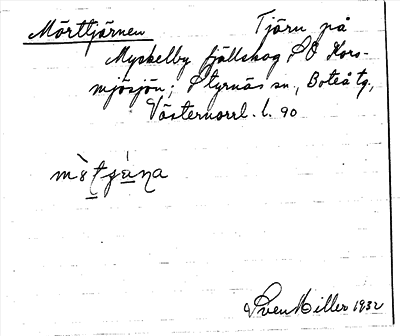 Mörttjärnen Tjärn på
Myckelby fjällskog, SO Kors-
mjösjön; Styrnäs sn., Boteå tg,
Västernorrl. l. 90
Sven Miller 1932